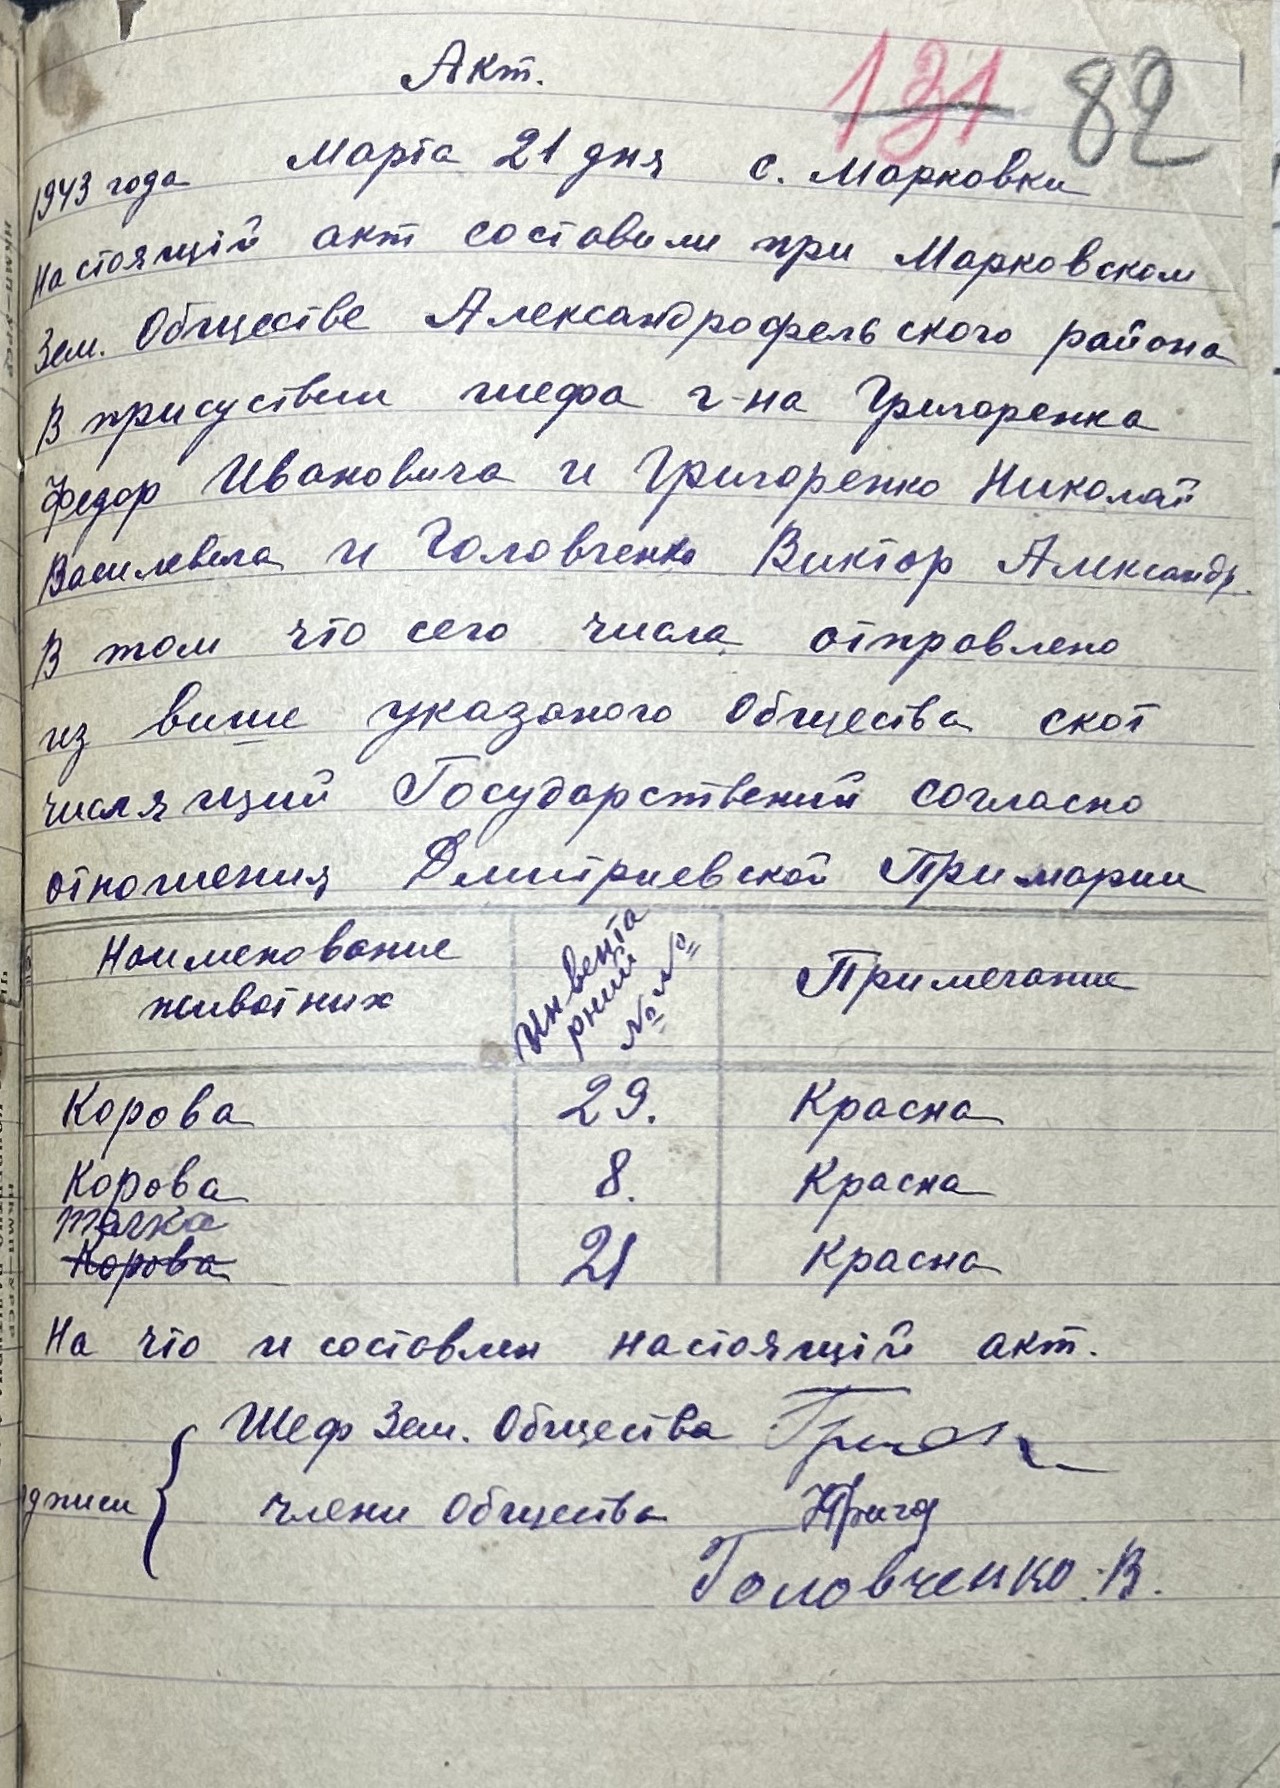 131 82
Акт.
1943 года Марта 21 дня с. Марковки
Настоящій акт составили при Марковском
Зем. Обществе Александрофельского района
В присуствии шефа г-на Григоренка
Федор Ивановича и Григоренко Николай
Василевича и Головченко Виктор Александр.
В том что сего числа отправлено
из више указаного Общества скот
числящий Государствений согласно
отношения Дмитриевской Примарии
Наименование животних
Инвентарний №№
Примечание
Корова 29. Красна
Корова 8. Красна
Корова 21 Красна
На что и составлен настоящій акт.
Шеф Зем. Общества
члени Общества
Головченко.В.